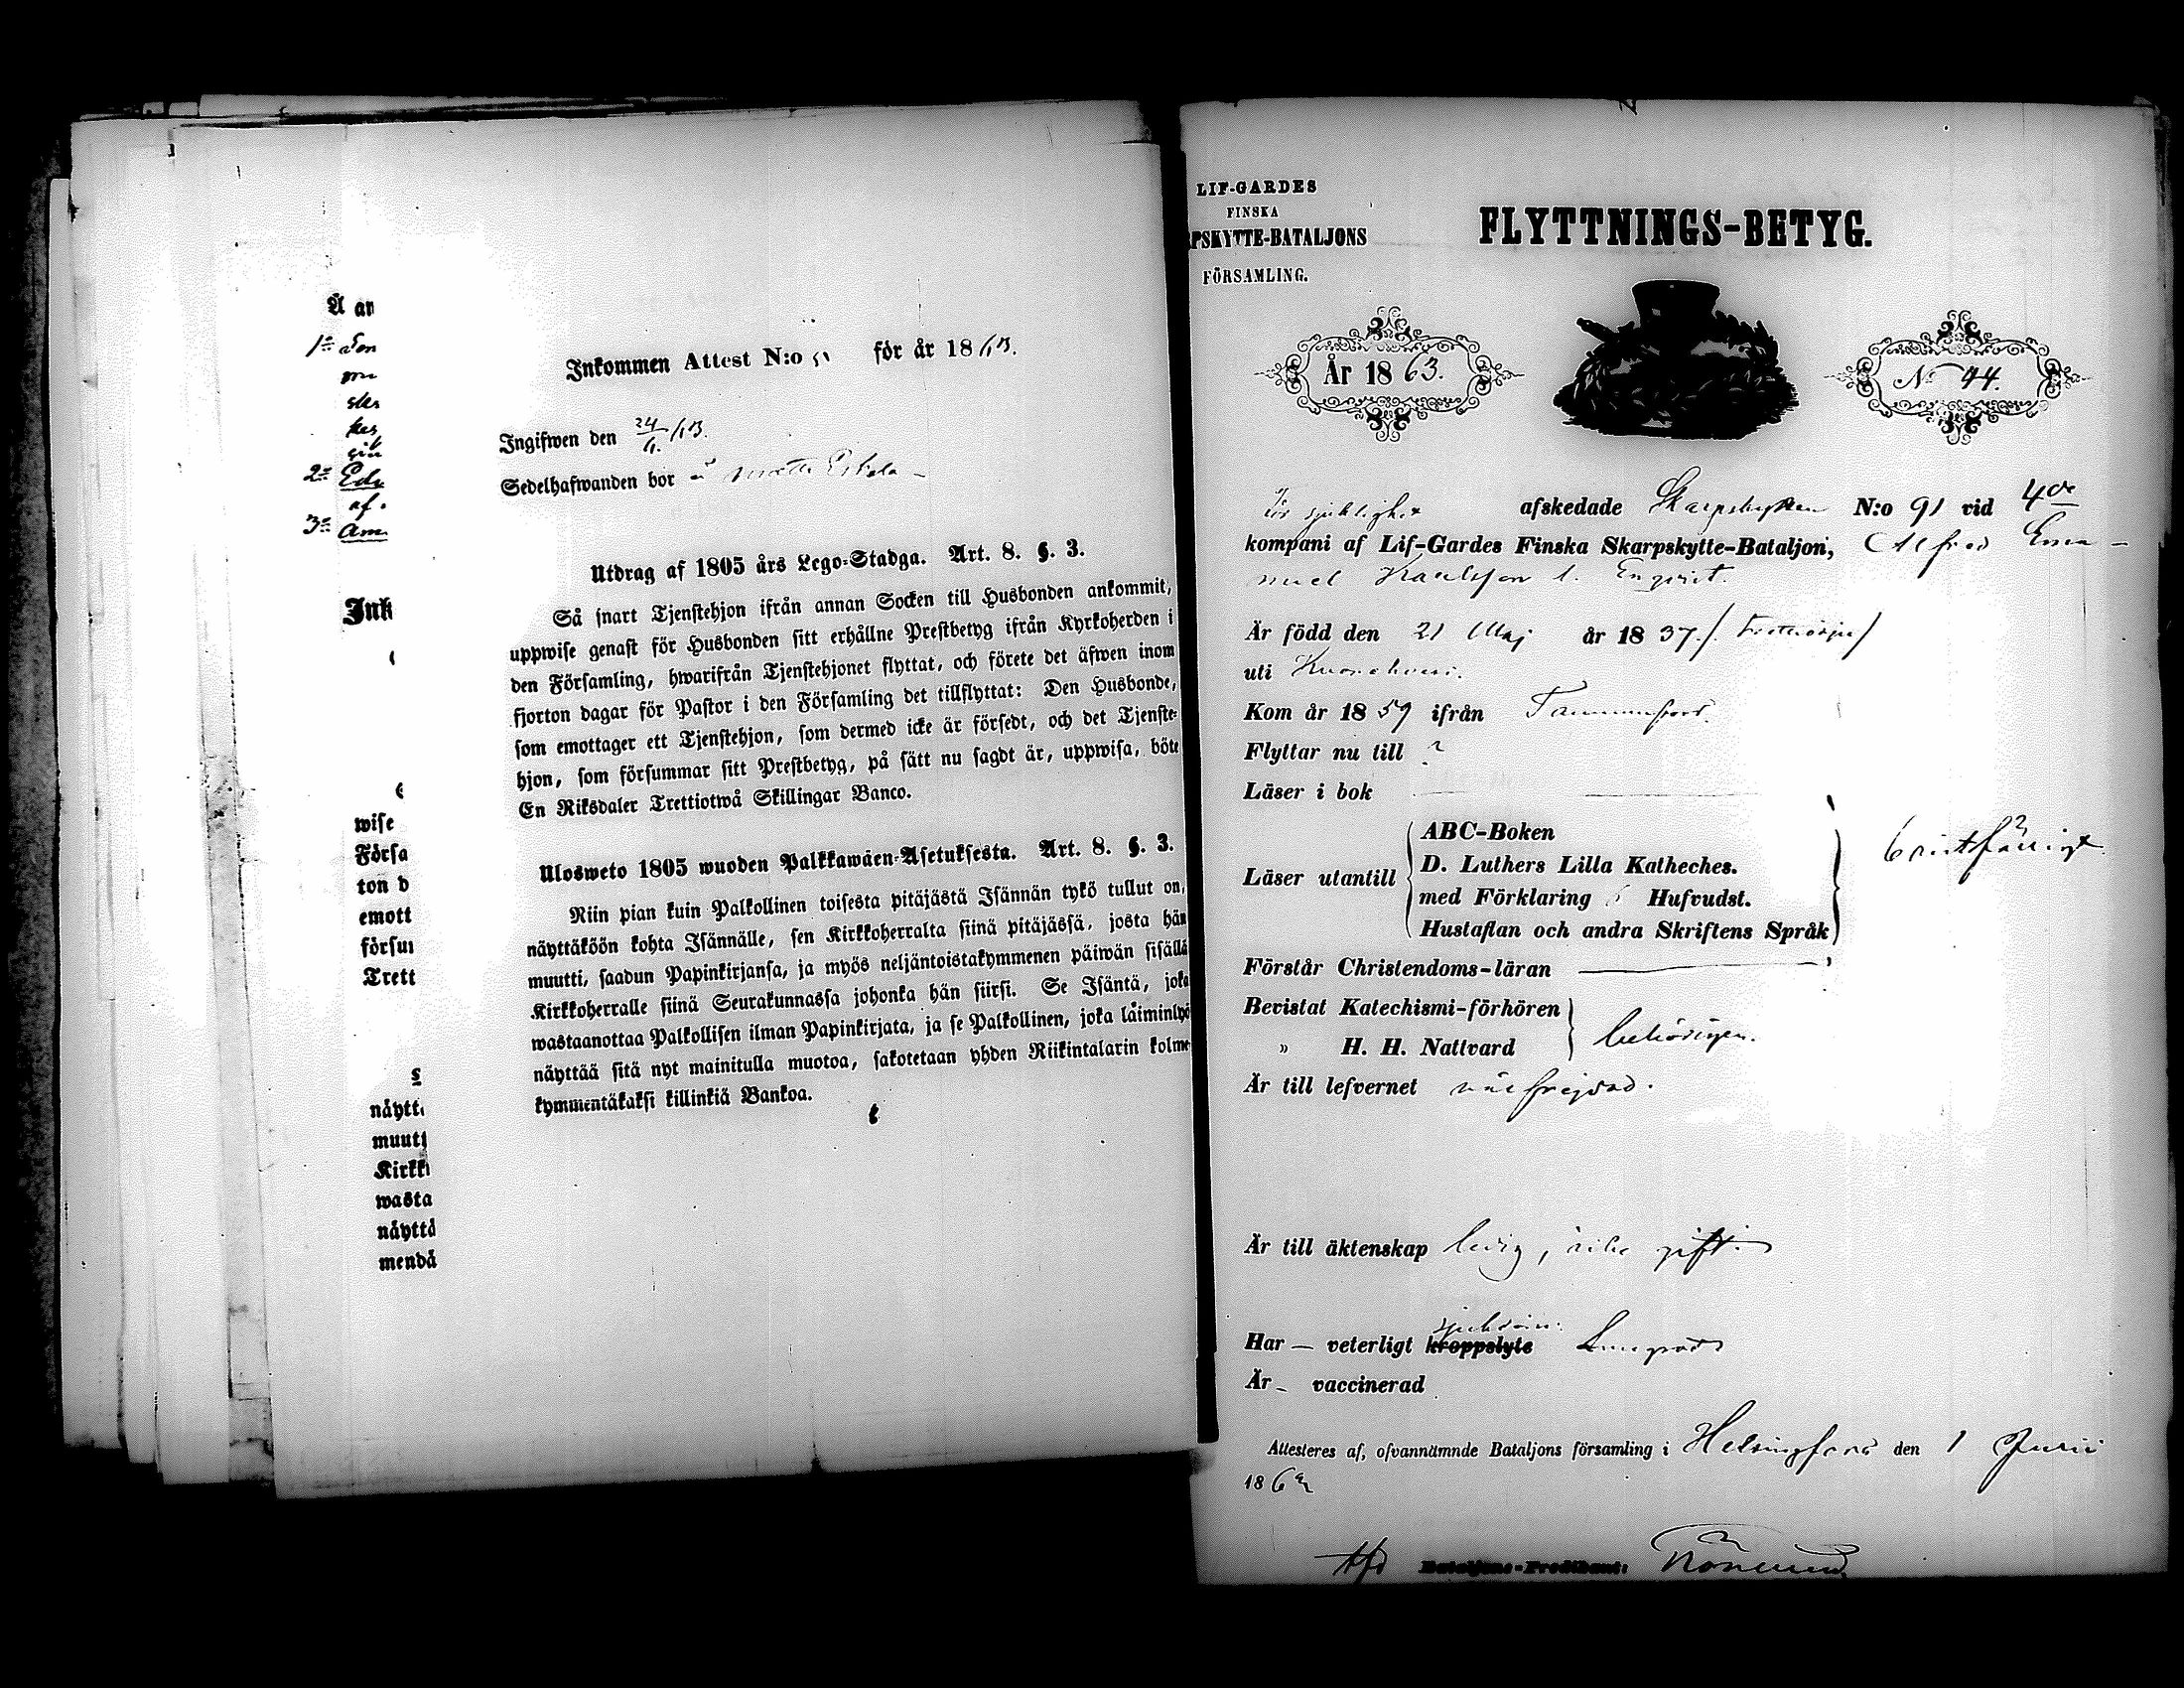 Å an
1=
2=
af
3= Am
Ink
wise
Förſa
ton d
emott
förſu
Trett
näytt
muutt
Kirkk
wasta
näyttä
mendä
Inkommen Attest N:o för år 1863.
Ingifwen den 24/6 63.
Sedelhafwanden bor å
Utdrag af 1805 års Lego-Stadga. Art. 8. §. 3.
Så ſnart Tjenſtehjon ifrån annan Socken till Husbonden ankommit,
uppwiſe genaſt för Husbonden ſitt erhållne Preſtbetyg ifrån Kyrkoherden i
den Förſamling, hwarifrån Tjenſtehjonet flyttat, och förete det äfwen inom
fjorton dagar för Paſtor i den Förſamling det tillflyttat: Den Husbonde,
ſom emottager ett Tjenſtehjon, ſom dermed icke är förſedt, och det Tjenſte-
hjon, ſom förſummar ſitt Preſtbetyg, på ſätt nu ſagdt är, uppwiſa, böte
En Riksdaler Trettiotwå Skillingar Banco.
Uloswetο 1805 wuoden Palkkawäen-Aſetukſesta. Art. 8. §. 3.
Niin pian kuin Palkollinen toiſesta pitäjästä Iſännän tykö tullut on,
näyttäköön kohta Iſännälle, ſen Kirkkoherralta ſiinä pitäjäſſä, josta hän
muutti, ſaadun Papinkirjanſa, ja myös neljäntoistakymmenen päiwän ſiſällä
Kirkkoherralle ſiinä Seurakunnasſa johonka hän ſiirſi. Se Iſäntä, joka
wastaanottaa Palkolliſen ilman Papinkirjata, ja ſe Palkollinen, joka läiminlyö
näyttää ſitä nyt mainitulla muotoa, ſakotetaan yhden Riikintalarin kolme-
kymmentäkakſi killinkiä Bankoa.
LIF-GARDES
FINSKA
PSKYTTE-BATALJONS
FÖRSAMLING.
FLYTTNINGS-BETYG.
År 1863.
No 44.
För sjuklighet afskedade Skarpskytten N:o 91 vid 4de
kompani af Lif-Gardes Finska Skarpskytte-Bataljon, Alfred Ema-
nuel Karlsson l. Enqvist.
Är född den 21 Maj år 1837 /: trettiosju/
uti Kuorehvesi.
Kom år 1859 ifrån Tammerfors.
Flyttar nu till ?
Läser i bok
Läser utantill
ABC-Boken
D. Luthers Lilla Katheches.
med Förklaring 6 Hufvudst.
Hustaflan och andra Skriftens Språk
Förstår Christendoms-läran
Bevistat Katechismi-förhören
" H. H. Nattvard
behörigen.
Är till lefvernet välfrejdad.
Är till äktenskap ledig, icke gift.
Har — veterligt kroppslyte
Är — vaccinerad
Attesteres af, ofvannämnde Bataljons församling i Helsingfors den 1 Junii
186
Bataljons-Predikant: